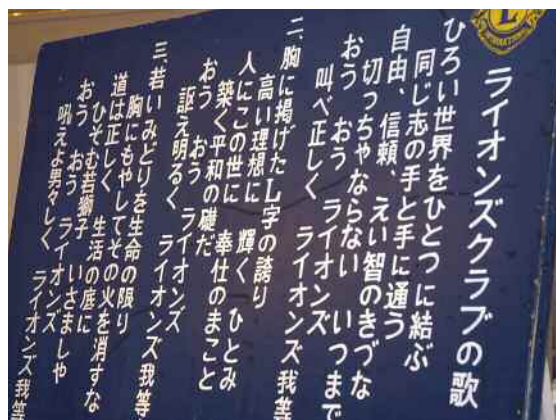 ライオンズクラブの歌
ひろい世界をひとつに結ぶ
同じ志の手と手に通う
自由、信頼、えい智のきづな
切っちゃならない いつまで
おう おう ライオンズ
叫べ正しく ライオンズ 我等
二、胸に掲げたL字の誇り
高い理想に 輝く ひとみ
人にこの世に 奉仕のまこと
築く平和の礎だ
おう おう ライオンズ
訴え明るく ライオンズ 我等
三、若いみどりを生命の限り
胸にもやしてその火を消すな
道は正しく 生活の庭に
ひそむ若獅子 いさましや
おう おう ライオンズ
吼えよ男々しく ライオンズ 我等
L
INTERNATIONAL